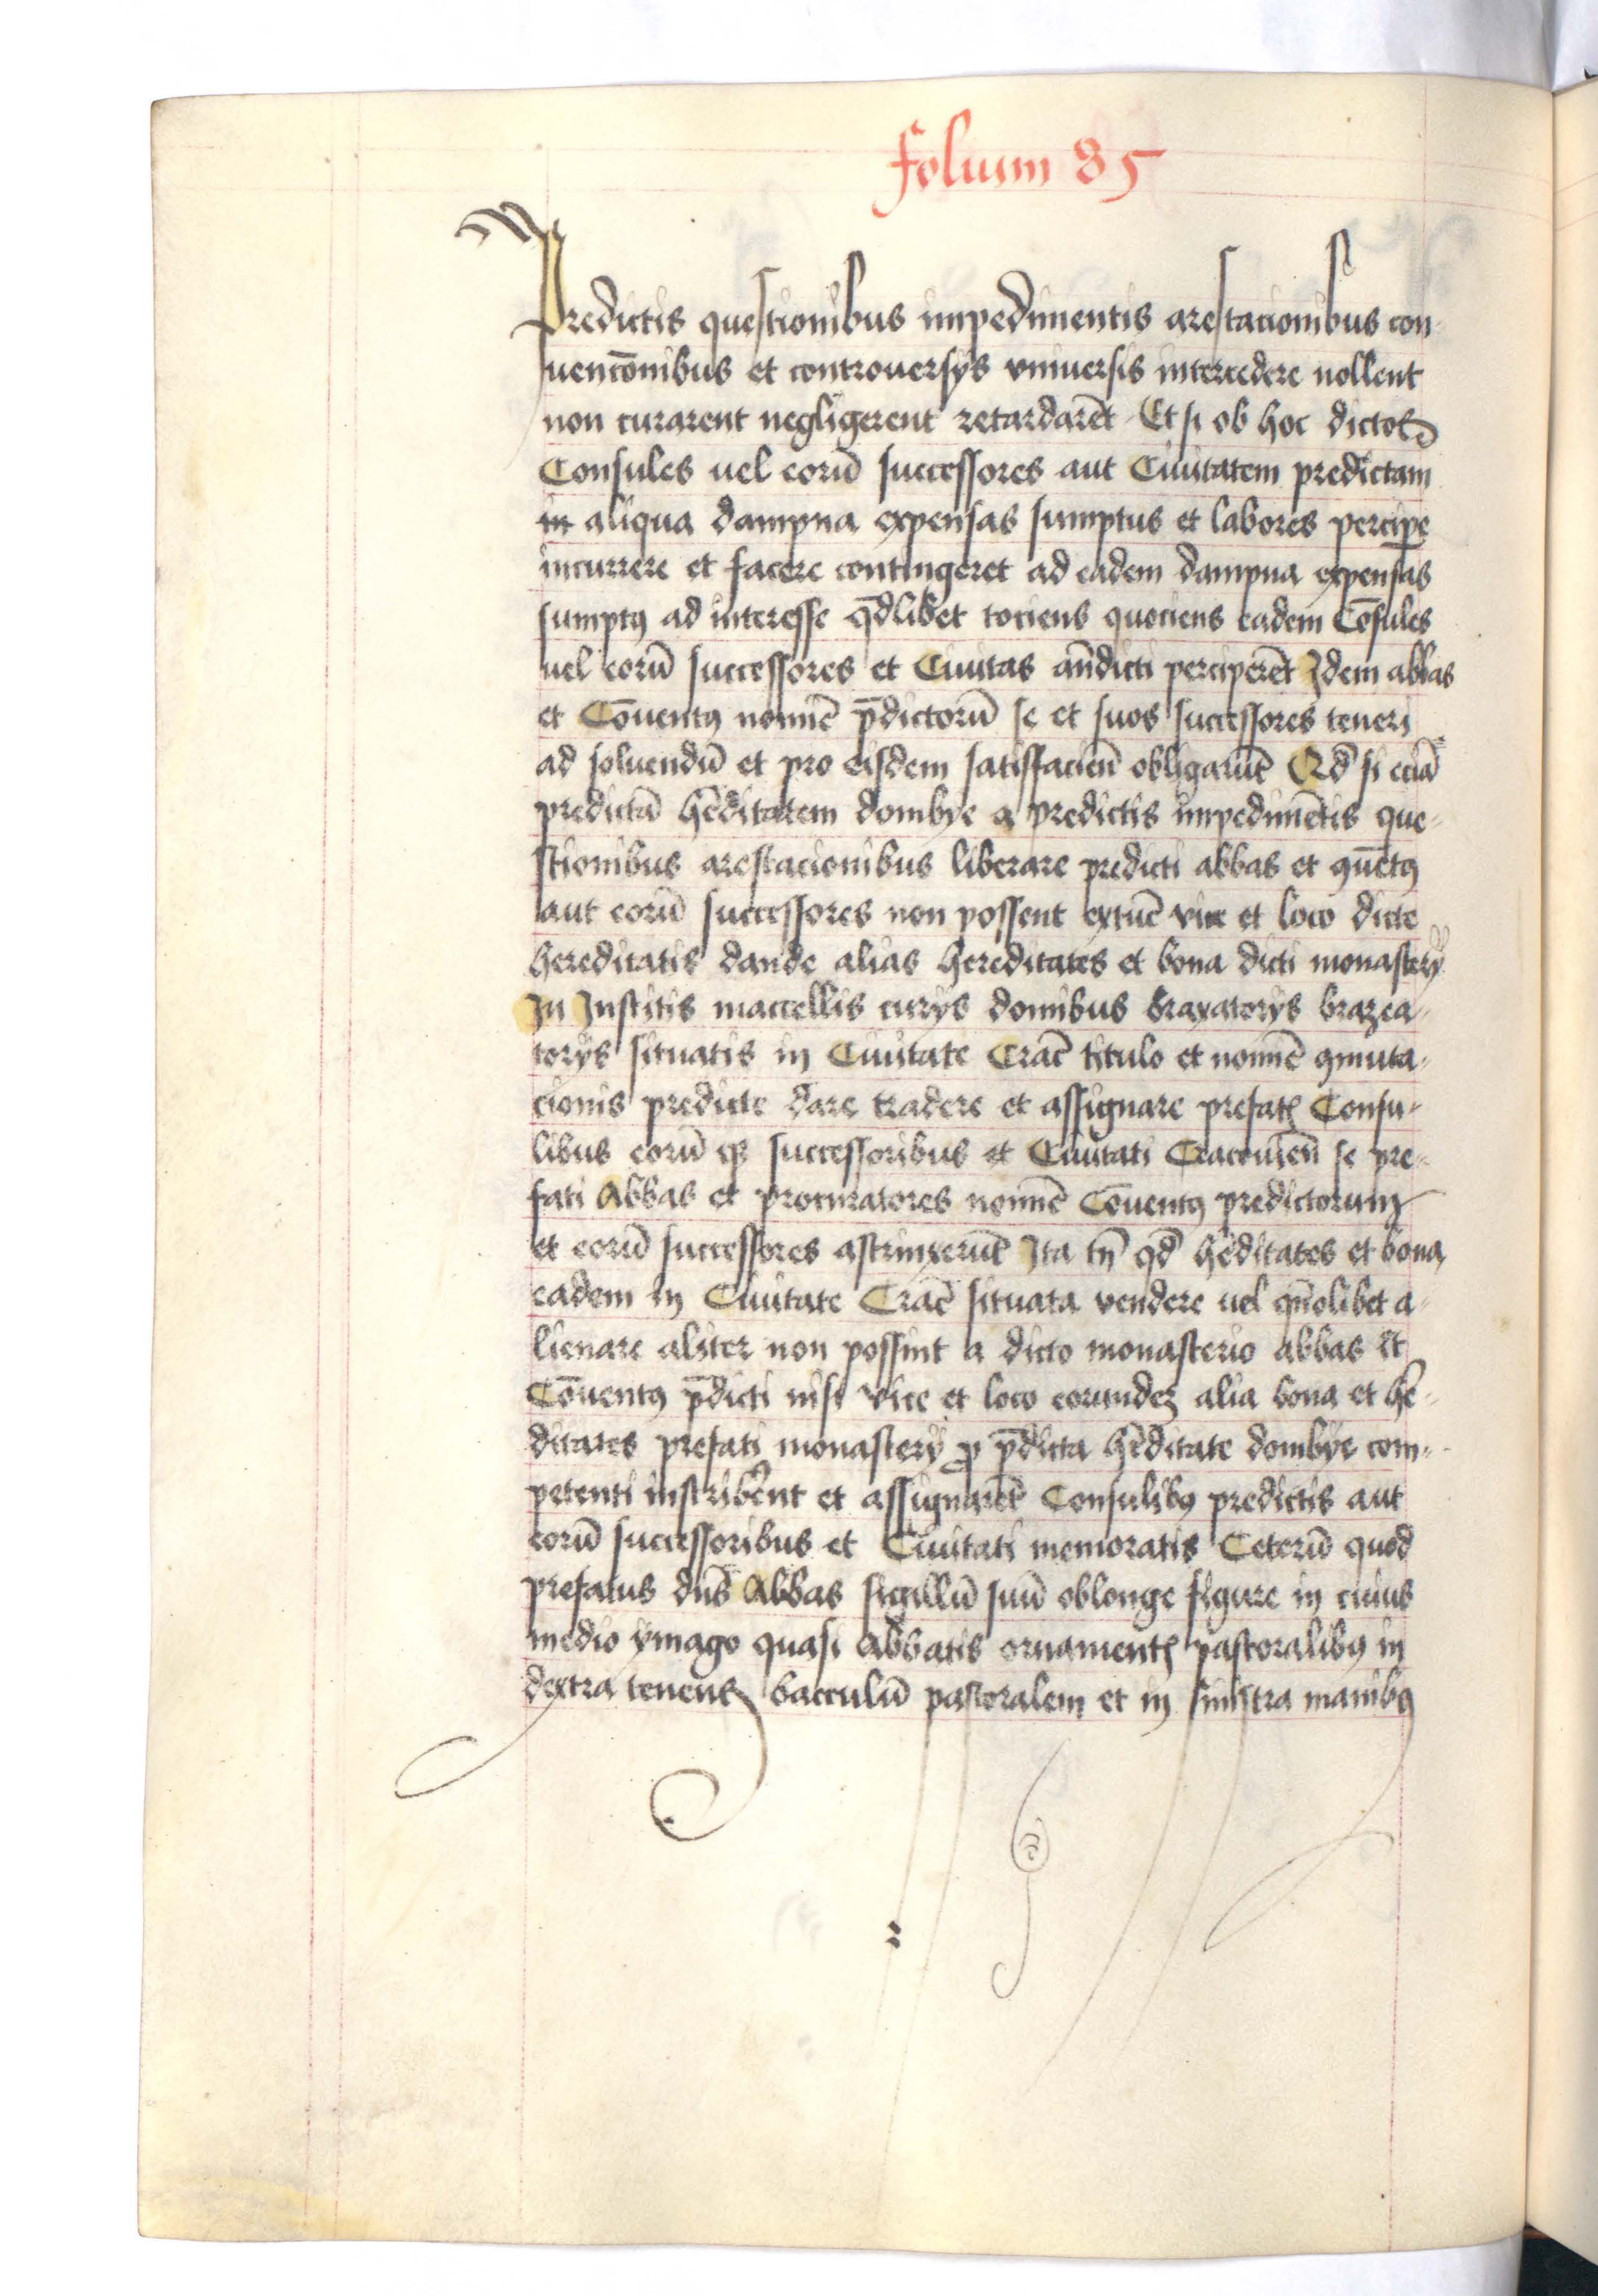 folium 85
Predictis questionibus impedimentis arestacionibus con-
uencōnibus et controuersÿs vniuersis intercedere nollent
non curarent negligerent retardarēt Et si ob hoc dictos
Consules uel eorū successores aut Ciuitatem predictam
in aliqua dampna expensas sumptus et labores percipe
incurrere et facere contingeret ad eadem dampna expensas
sumptꝰ ad interesse qd̄libet tociens quociens eadem Cōsules
uel eorū successores et Ciuitas an̄dicti perciperēt Idem abbas
et Cōuentꝰ nomīe p̄dictorū se et suos successores teneri
ad soluendū et pro eisdem satisfacien̄ obligarūt Qd̄ si eciā
predictā hēditatem dombye a predictis impedimētis que-
stionibus arestacionibus liberare predicti abbas et ꝯuētꝰ
aut eorū successores non possent extūc vice et loco dicte
hereditatis dande alias hereditates et bona dicti monasterÿ
In Institis maccellis curÿs domibus braxatorÿs brazea-
torÿs situatis in Ciuitate Crac̄ titulo et nomīe ꝯmuta-
cionis predicte dare tradere et assignare prefatꝭ Consu-
libus eorū qꝫ successoribus et Ciuitati Cracouien̄ se pre-
fati Abbas et procuratores nomīe Cōuentꝰ predictorum
et eorū successores astrinxerūt Ita tn̄ qd̄ hēditates et bona
eadem in Ciuitate Crac̄ situata vendere uel qn̄olibet a-
lienare aliter non possint a dicto monasterio abbas et
Cōuentꝰ p̄dicti nisi vice et loco eorundeꝫ alia bona et hē-
ditates prefati monasterÿ ꝓ p̄dicta hēditate dombÿe com-
petenti inscriberent et assignarēt Consulibꝰ predictis aut
eorū successoribus et Ciuitati memoratis Ceterū quod
prefatus dn̄s Abbas sigillū suū oblonge figure in cuius
medio ymago quasi Abbatis ornamentꝭ pastoralibꝰ in
dextra tenens bacculū pastoralem et in sinistra manibꝰ